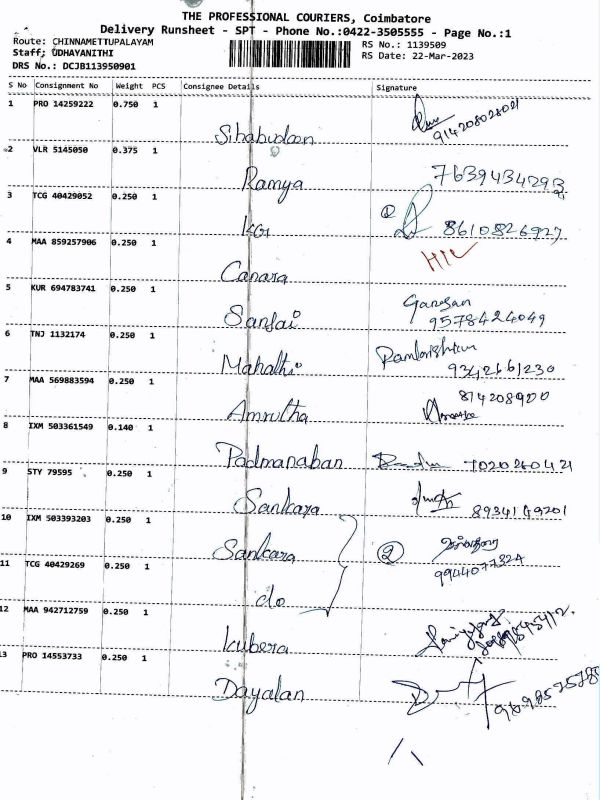 THE PROFESSIONAL COURIERS, Coimbatore
Delivery Runsheet - SPT - Phone No.:0422-3505555 - Page No.:1
Route: CHINNAMETTUPALAYAM
Staff; UDHAYANITHI
DRS No.: DCJB113950901
RS No.: 1139509
RS Date: 22-Mar-2023
S No Consignment No Weight PCS Consignee Details Signature
1 PRO 14259222 0.750 1
Sihabudeen 914208028021
2 VLR 5145050 0.375 1
Ramya 7639434293
3 TCG 40429052 0.250 1
KG ① 8610826927
4 MAA 859257906 0.250 1
Canara
5 KUR 694783741 0.250 1
Ganesan
Sanjai 9578424049
6 TNJ 1132174 0.250 1
Mahathi 9342661230
7 MAA 569883594 0.250 1
Amrutha
8 IXM 503361549 0.140 1
Padmanaban
9 STY 79595 0.250 1
Sankara
10 IXM 503393203 0.250 1
Sankara ②
11 TCG 40429269 0.250 1
do
12 MAA 942712759 0.250 1
Kubera
13 PRO 14553733 0.250 1
Dayalan